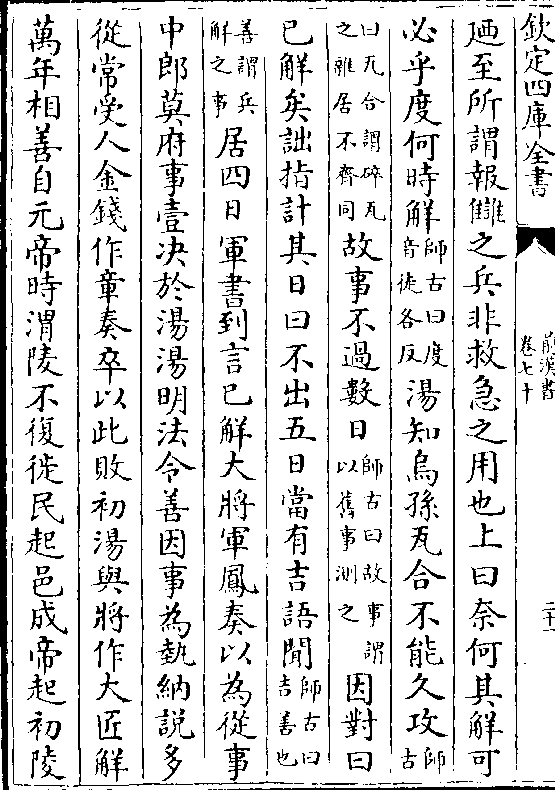 欽定四庫全書
前漢書
卷七十
二十二
廼至所謂報讎之兵非救急之用也上曰奈何其解可
必乎度何時解師古曰度音徒各反湯知烏孫瓦合不能久攻師古
曰瓦合謂碎瓦之雜居不齊同故事不過數日師古曰故事謂以舊事測之因對曰
已解矣詘指計其日曰不出五日當有吉語聞師古曰吉善也
善謂兵解之事居四日軍書到言已解大將軍鳳奏以為從事
中郎莫府事壹決於湯湯明法令善因事為埶納說多
從常受人金錢作章奏卒以此敗初湯與將作大匠解
萬年相善自元帝時渭陵不復徙民起邑成帝起初陵